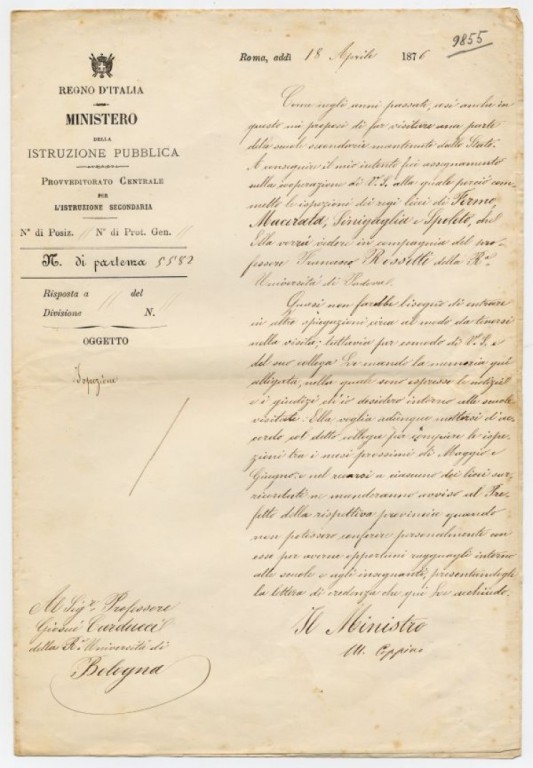 9855
Roma, addì 18 Aprile 1876
REGNO D'ITALIA
MINISTERO
DELLA
ISTRUZIONE PUBBLICA
PROVVEDITORATO CENTRALE
PER
L'ISTRUZIONE SECONDARIA
N.º di Posiz. " N.º di Prot. Gen. "
N. di partenza 5582
Risposta a " del "
Divisione " N.
OGGETTO
Ispezione
Come negli anni passati, così anche in
questo mi proposi di far visitare una parte
delle scuole secondarie mantenute dallo Stato.
A conseguire il mio intento fui assegnamento
sulla cooperazione di V. S. alla quale perciò com-
metto le ispezioni dei regi licei di Fermo,
Macerata, Sinigaglia e Spoleto, che
Ella vorrà vedere in compagnia del pro-
fessore Tommaso Rossetti della R.ª
Università di Padova.
Quasi non farebbe bisogno di entrare
in altre spiegazioni circa al modo da tenersi
nella visita; tuttavia per comodo di V. S. e
del suo collega Le mando la memoria qui
allegata, nella quale sono espresse le notizie
e i giudizi ch'io desidero intorno alle scuole
visitate: Ella voglia adunque mettersi d'ac-
cordo col detto collega per compiere le ispe-
zioni tra i mesi prossimi di Maggio e
Giugno: e nel recarsi a ciascuno dei licei sur-
ricordati ne manderanno avviso al Pre-
fetto della rispettiva provincia quando
non potessero conferire personalmente con
esso per averne opportuni ragguagli intorno
alle scuole e agli insegnanti, presentandogli
la lettera di credenza che qui Le acchiudo.
Il Ministro
M. Coppino
Al Sig.r Professore
Giosuè Carducci
della R.ª Università di
Bologna